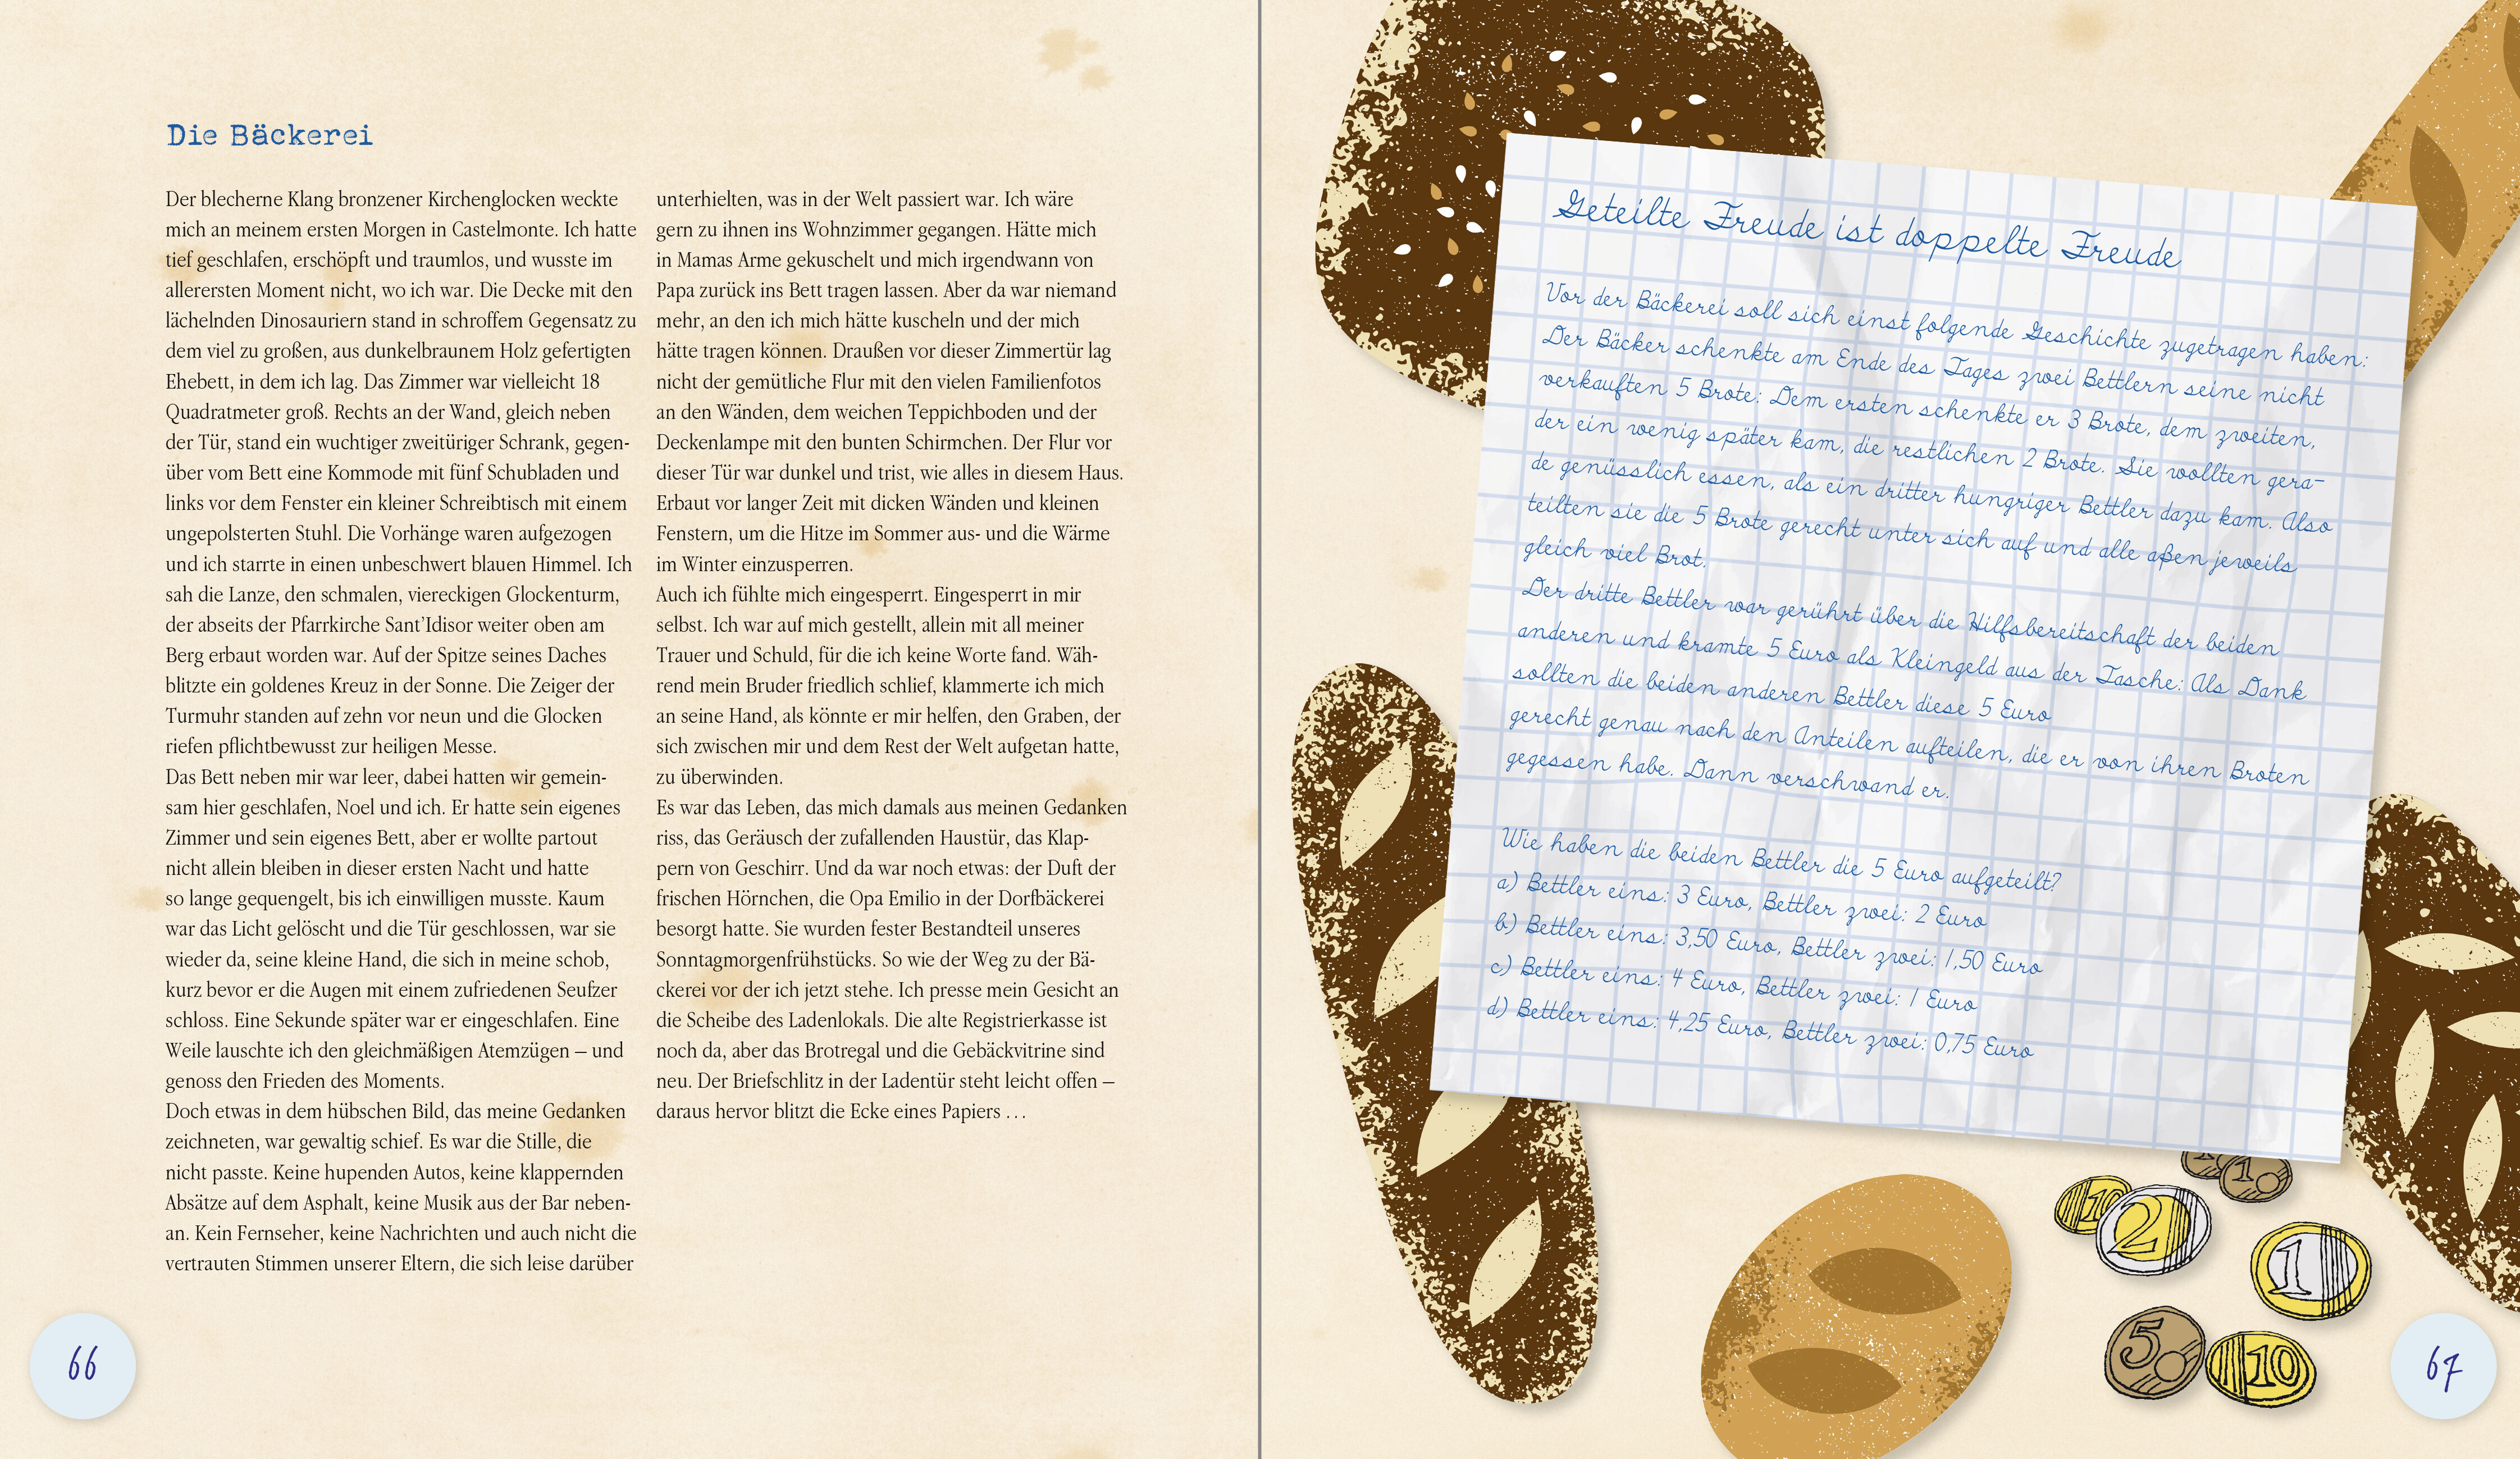 Die Bäckerei
Der blecherne Klang bronzener Kirchenglocken weckte
mich an meinem ersten Morgen in Castelmonte. Ich hatte
tief geschlafen, erschöpft und traumlos, und wusste im
allerersten Moment nicht, wo ich war. Die Decke mit den
lächelnden Dinosauriern stand in schroffem Gegensatz zu
dem viel zu großen, aus dunkelbraunem Holz gefertigten
Ehebett, in dem ich lag. Das Zimmer war vielleicht 18
Quadratmeter groß. Rechts an der Wand, gleich neben
der Tür, stand ein wuchtiger zweitüriger Schrank, gegen-
über vom Bett eine Kommode mit fünf Schubladen und
links vor dem Fenster ein kleiner Schreibtisch mit einem
ungepolsterten Stuhl. Die Vorhänge waren aufgezogen
und ich starrte in einen unbeschwert blauen Himmel. Ich
sah die Lanze, den schmalen, viereckigen Glockenturm,
der abseits der Pfarrkirche Sant’Idisor weiter oben am
Berg erbaut worden war. Auf der Spitze seines Daches
blitzte ein goldenes Kreuz in der Sonne. Die Zeiger der
Turmuhr standen auf zehn vor neun und die Glocken
riefen pflichtbewusst zur heiligen Messe.
Das Bett neben mir war leer, dabei hatten wir gemein-
sam hier geschlafen, Noel und ich. Er hatte sein eigenes
Zimmer und sein eigenes Bett, aber er wollte partout
nicht allein bleiben in dieser ersten Nacht und hatte
so lange gequengelt, bis ich einwilligen musste. Kaum
war das Licht gelöscht und die Tür geschlossen, war sie
wieder da, seine kleine Hand, die sich in meine schob,
kurz bevor er die Augen mit einem zufriedenen Seufzer
schloss. Eine Sekunde später war er eingeschlafen. Eine
Weile lauschte ich den gleichmäßigen Atemzügen – und
genoss den Frieden des Moments.
Doch etwas in dem hübschen Bild, das meine Gedanken
zeichneten, war gewaltig schief. Es war die Stille, die
nicht passte. Keine hupenden Autos, keine klappernden
Absätze auf dem Asphalt, keine Musik aus der Bar neben-
an. Kein Fernseher, keine Nachrichten und auch nicht die
vertrauten Stimmen unserer Eltern, die sich leise darüber
unterhielten, was in der Welt passiert war. Ich wäre
gern zu ihnen ins Wohnzimmer gegangen. Hätte mich
in Mamas Arme gekuschelt und mich irgendwann von
Papa zurück ins Bett tragen lassen. Aber da war niemand
mehr, an den ich mich hätte kuscheln und der mich
hätte tragen können. Draußen vor dieser Zimmertür lag
nicht der gemütliche Flur mit den vielen Familienfotos
an den Wänden, dem weichen Teppichboden und der
Deckenlampe mit den bunten Schirmchen. Der Flur vor
dieser Tür war dunkel und trist, wie alles in diesem Haus.
Erbaut vor langer Zeit mit dicken Wänden und kleinen
Fenstern, um die Hitze im Sommer aus- und die Wärme
im Winter einzusperren.
Auch ich fühlte mich eingesperrt. Eingesperrt in mir
selbst. Ich war auf mich gestellt, allein mit all meiner
Trauer und Schuld, für die ich keine Worte fand. Wäh-
rend mein Bruder friedlich schlief, klammerte ich mich
an seine Hand, als könnte er mir helfen, den Graben, der
sich zwischen mir und dem Rest der Welt aufgetan hatte,
zu überwinden.
Es war das Leben, das mich damals aus meinen Gedanken
riss, das Geräusch der zufallenden Haustür, das Klap-
pern von Geschirr. Und da war noch etwas: der Duft der
frischen Hörnchen, die Opa Emilio in der Dorfbäckerei
besorgt hatte. Sie wurden fester Bestandteil unseres
Sonntagmorgenfrühstücks. So wie der Weg zu der Bä-
ckerei vor der ich jetzt stehe. Ich presse mein Gesicht an
die Scheibe des Ladenlokals. Die alte Registrierkasse ist
noch da, aber das Brotregal und die Gebäckvitrine sind
neu. Der Briefschlitz in der Ladentür steht leicht offen –
daraus hervor blitzt die Ecke eines Papiers . . .
66
Geteilte Freude ist doppelte Freude
Vor der Bäckerei soll sich einst folgende Geschichte zugetragen haben:
Der Bäcker schenkte am Ende des Tages zwei Bettlern seine nicht
verkauften 5 Brote: Dem ersten schenkte er 3 Brote, dem zweiten,
der ein wenig später kam, die restlichen 2 Brote. Sie wollten gera-
de genüsslich essen, als ein dritter hungriger Bettler dazu kam. Also
teilten sie die 5 Brote gerecht unter sich auf und alle aßen jeweils
gleich viel Brot.
Der dritte Bettler war gerührt über die Hilfsbereitschaft der beiden
anderen und kramte 5 Euro als Kleingeld aus der Tasche: Als Dank
sollten die beiden anderen Bettler diese 5 Euro
gerecht genau nach den Anteilen aufteilen, die er von ihren Broten
gegessen habe. Dann verschwand er.
Wie haben die beiden Bettler die 5 Euro aufgeteilt?
a) Bettler eins: 3 Euro, Bettler zwei: 2 Euro
b) Bettler eins: 3,50 Euro, Bettler zwei: 1,50 Euro
c) Bettler eins: 4 Euro, Bettler zwei: 1 Euro
d) Bettler eins: 4,25 Euro, Bettler zwei: 0,75 Euro
1
10
2
1
5
10
67